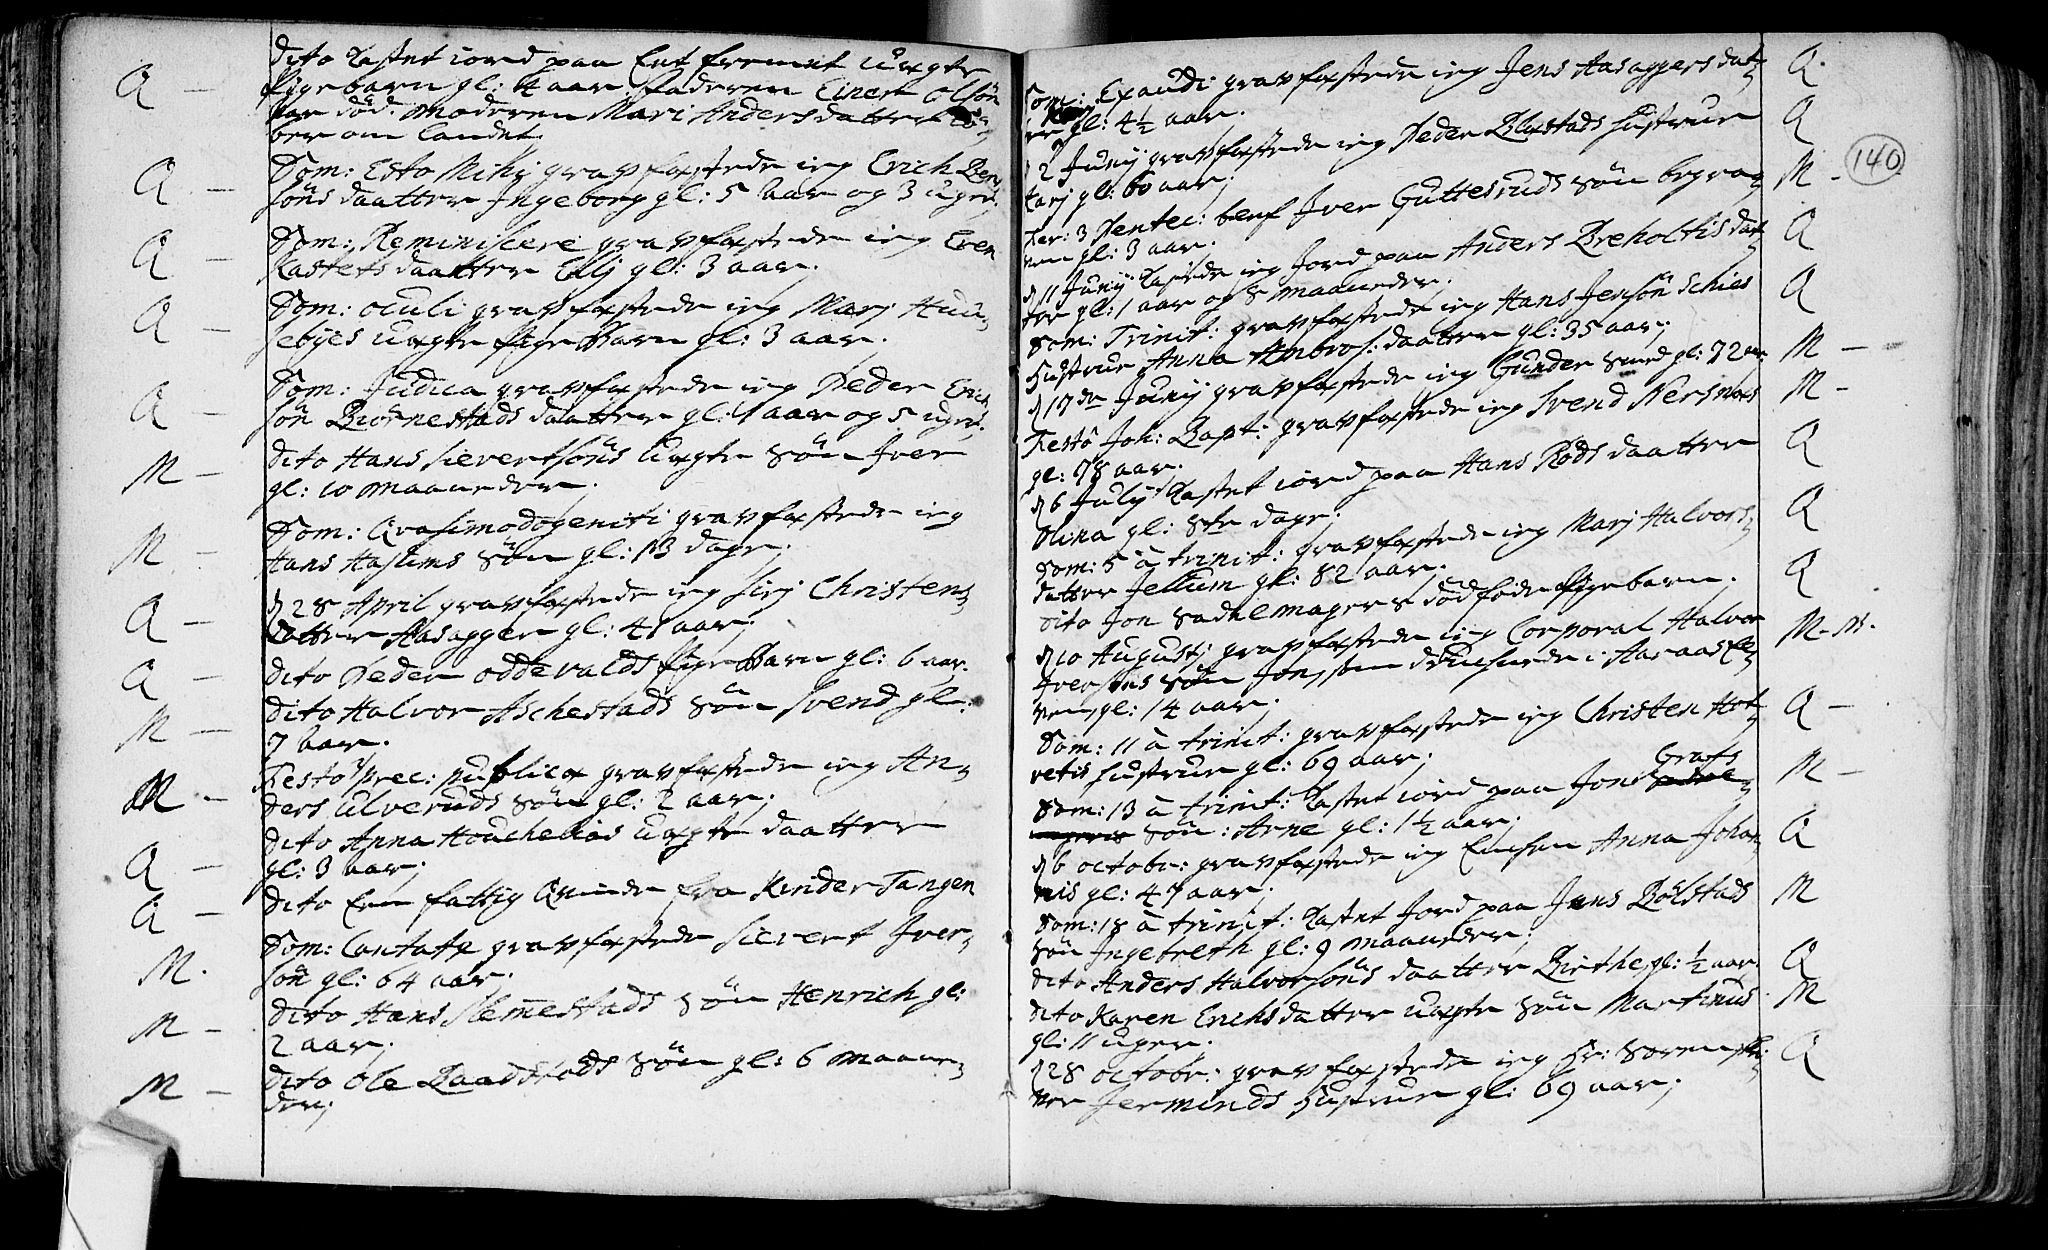 Q — dito kastet iord paa Ent fremet uægte
Pigebarn gl: 4 aar. Faderen Einert Olsön
var död. Moderen Mari Andersdatter
ber om landet
Q — Dom: Esto Mihi gravfæstede ieg Erich Ben„
söns daatter Ingeborg gl: 5 aar og 3 uger,
Q — Dom: Reminiscere gravfæstede ieg Even
Kastets daatter Elj gl: 3 aar.
Q — Dom: Oculi gravfæstede ieg Marj Huu„
sebyes uægte Pige Barn gl: 3 aar.
Q — Dom: Judica gravfæstede ieg Peder Erich
sön Biörnestads daatter gl: 1 aar og 5 uger.
M — dito Hans Sievertsöns uægte Sön Iver
gl: 10 maaneder.
M — Dom: Qvasimodogeniti gravfæstede ieg
Hans Haslums Sön gl: 13 dage;
Q — d 28 April gravfæstede ieg Sirj Christens„
datter Aasaggen gl: 41 aar;
Q — dito Peder Oddevalds Pige Barn gl: 6 aar.
M — dito Halvor Aschestads Sön Svend gl:
7 aar.
M — Festo prec: publicæ gravfæstede ieg An„
ders Ulveruds Sön gl: 2 aar;
Q — dito Anna Houchelias uægte daatter
gl: 3 aar;
Q — dito Een fattig Qvinde fra Kinder Tangen
M. Dom: Cantate gravfæstede Sievert Iver„
sön gl: 64 aar.
M — dito Hans Slemestads Sön Henrich gl:
2 aar;
M — dito Ole Baadstads Sön gl: 6 maane„
der;
140
Dom: Exaudi gravfæstede ieg Jens Aasaggers dat„ Q.
ter gl: 4½ aar.
d 2 Junij gravfæstede ieg Peder Blixstads Hustrue Q
Karj gl: 60 aar;
Fer: 3 Pentec: blef Iver Guttesruds Sön begra„ M —
ven gl: 3 aar.
d 11 Junij kastede ieg Jord paa Anders Breholtis dat„ Q
ter gl: 1 aar og 8 maaneder.
Dom: Trinit: gravfæstede ieg Hans Jensön Schies Q
Hustrue Anna Ambros: daatter gl: 35 aar;
d 17de Junij gravfæstede ieg Gunder Smed gl: 72 aar. M —
Festo Joh: Bapt: gravfæstede ieg Svend Nersnæs M —
gl: 78 aar.
d 6 Julij kastet iord paa Hans Röds daatter Q
Olina gl: 8te dage;
Dom: 5 à trinit: gravfæstede ieg Marj Halvors„ Q
datter Jellum gl: 82 aar.
dito Jon Sadelmagers dödföde Pigebarn. Q
d 10 Augustj gravfæstede ieg Corporal Halvor M. M.
Iversens Sön Jon, som druchnede i Aaraas El„
ven, gl: 14 aar;
Dom: 11 à trinit: gravfæstede ieg Christen Hot„ Q —
vetis Hustrue gl: 69 aar;
Grafs
Dom: 13 à trinit: kastet iord paa Jons M —
Sön: Arne gl: 1½ aar;
d 6 octobr: gravfæstede ieg Enchen Anna Johan„ Q
nis gl: 47 aar.
Dom: 18 à trinit: kastet Jord paa Jens Bölstads M
Sön Ingebreth gl: 9 maaneder;
dito Anders Halvorsöns daatter Birthe gl: ½ aar. Q
dito Karen Erichsdatter uægte Sön Martinus M
gl: 11 uger.
d 28 octobr: gravfæstede ieg Hr: Sorenskri„ Q
ver Jerminds Hustrue gl: 69 aar;